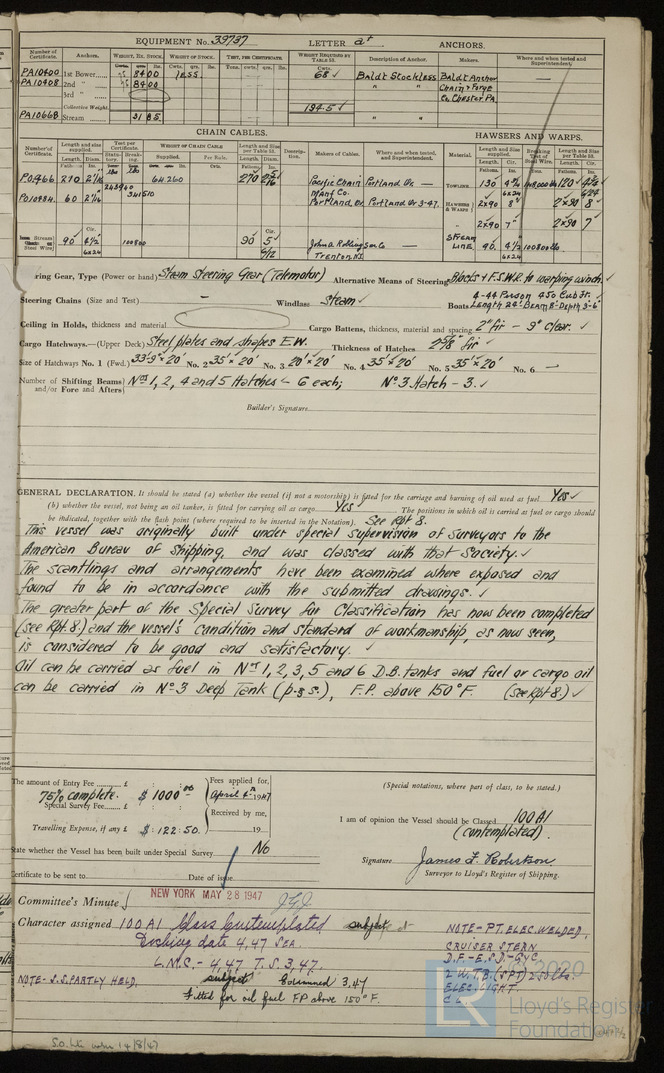 EQUIPMENT No. 39737 LETTER a† ANCHORS.
Number of Certificate. Anchors. WEIGHT, EX. STOCK. WEIGHT OF STOCK. TEST, PER CERTIFICATE. WEIGHT REQUIRED BY TABLE 53. Description of Anchor. Makers. Where and when tested and Superintendent.
PA10400 1st Bower 8400 1255 68 ✓ Baldt Stockless Baldt Anchor —
PA10408 2nd " 8400 " " Chain & Forge
3rd " Co. Chester, Pa.
Collective Weight. 194.5 ✓
PA10668 Stream 3185 " "
CHAIN CABLES.
HAWSERS AND WARPS.
Number of Certificate. Length and size supplied. Test per Certificate. WEIGHT OF CHAIN CABLE Length and size per Table 53. Description. Makers of Cables. Where and when tested, and Superintendent. Material. Length and size supplied. Breaking Test of Steel Wire. Length and size per Table 53.
PO.966 270 2 1/16 64260 270 Pacific Chain Portland Or. — TOWLING 130
243960 341510 Manf Co.
PO10984 60 2 1/16 Portland Or. Portland Or. 3-47. HAWSERS & WARPS 2x90 8" 2x90 8
2x90 7" ✓ 2x90 7
90 4 1/2 100800 90 5 John A. Roebling Son Co STREAM LINE 90 4 1/2 100800 lbs.
6x24 Trenton, N.J. 6x24
ring Gear, Type (Power or hand) Steam Steering Gear (Telemotor) Alternative Means of Steering Blocks & F.S.W.R. to warping winch. ✓
Steering Chains (Size and Test) — Windlass Steam ✓ Boats 4-44 Person 450 Cub Ft. Length 24' Beam 8' Depth 3'-6"
Ceiling in Holds, thickness and material Cargo Battens, thickness, material and spacing 2" fir — 9" clear. ✓
Cargo Hatchways.—(Upper Deck) Steel plates and shapes E.W. Thickness of Hatches 2 5/8" fir ✓
Size of Hatchways No. 1 (Fwd.) 33'-9" x 20' No. 2 35' x 20' No. 3 20' x 20' No. 4 35' x 20' No. 5 35' x 20' No. 6 —
Number of Shifting Beams and/or Fore and Afters Nos 1, 2, 4 and 5 Hatches — 6 each; No. 3 Hatch — 3. ✓
Builder's Signature
GENERAL DECLARATION. It should be stated (a) whether the vessel (if not a motorship) is fitted for the carriage and burning of oil used as fuel Yes ✓
(b) whether the vessel, not being an oil tanker, is fitted for carrying oil as cargo Yes ✓ The positions in which oil is carried as fuel or cargo should
be indicated, together with the flash point (where required to be inserted in the Notation). See Rpt 8.
This vessel was originally built under special supervision of Surveyors to the
American Bureau of Shipping, and was classed with that Society. ✓
The scantlings and arrangements have been examined where exposed and
found to be in accordance with the submitted drawings. ✓
The greater part of the Special Survey for Classification has now been completed
(see Rpt. 8.) and the vessel's condition and standard of workmanship, as now seen,
is considered to be good and satisfactory. ✓
Oil can be carried as fuel in Nos 1, 2, 3, 5 and 6 D.B. tanks and fuel or cargo oil
can be carried in No 3 Deep Tank (p & s.), F.P. above 150°F. (see Rpt 8.) ✓
The amount of Entry Fee £ : : Fees applied for,
75% complete. $ 1000.00 April 6th 1947
Special Survey Fee £ Received by me,
Travelling Expense, if any £ $ : 122 : 50. 19
(Special notations, where part of class, to be stated.)
I am of opinion the Vessel should be Classed 100 A1
(contemplated).
State whether the Vessel has been built under Special Survey No
Signature James F. Robertson
Surveyor to Lloyd's Register of Shipping.
Certificate to be sent to Date of issue
Committee's Minute NEW YORK MAY 28 1947
Character assigned 100 A1 Class Contemplated subject
Docking date 4,47 Sea.
L.M.C. - 4,47 T.S. 3,47.
NOTE - S.S. PARTLY HELD. subject 3,47
fitted for oil fuel FP above 150°F.
NOTE - PT. ELEC. WELDED.
CRUISER STERN
D.F. - E.S.D - GYC.
2 W.T.B. (SPT) 250 lbs.
ELEC. LIGHT.
C L
© 2020
LR
Lloyd's Register
Foundation